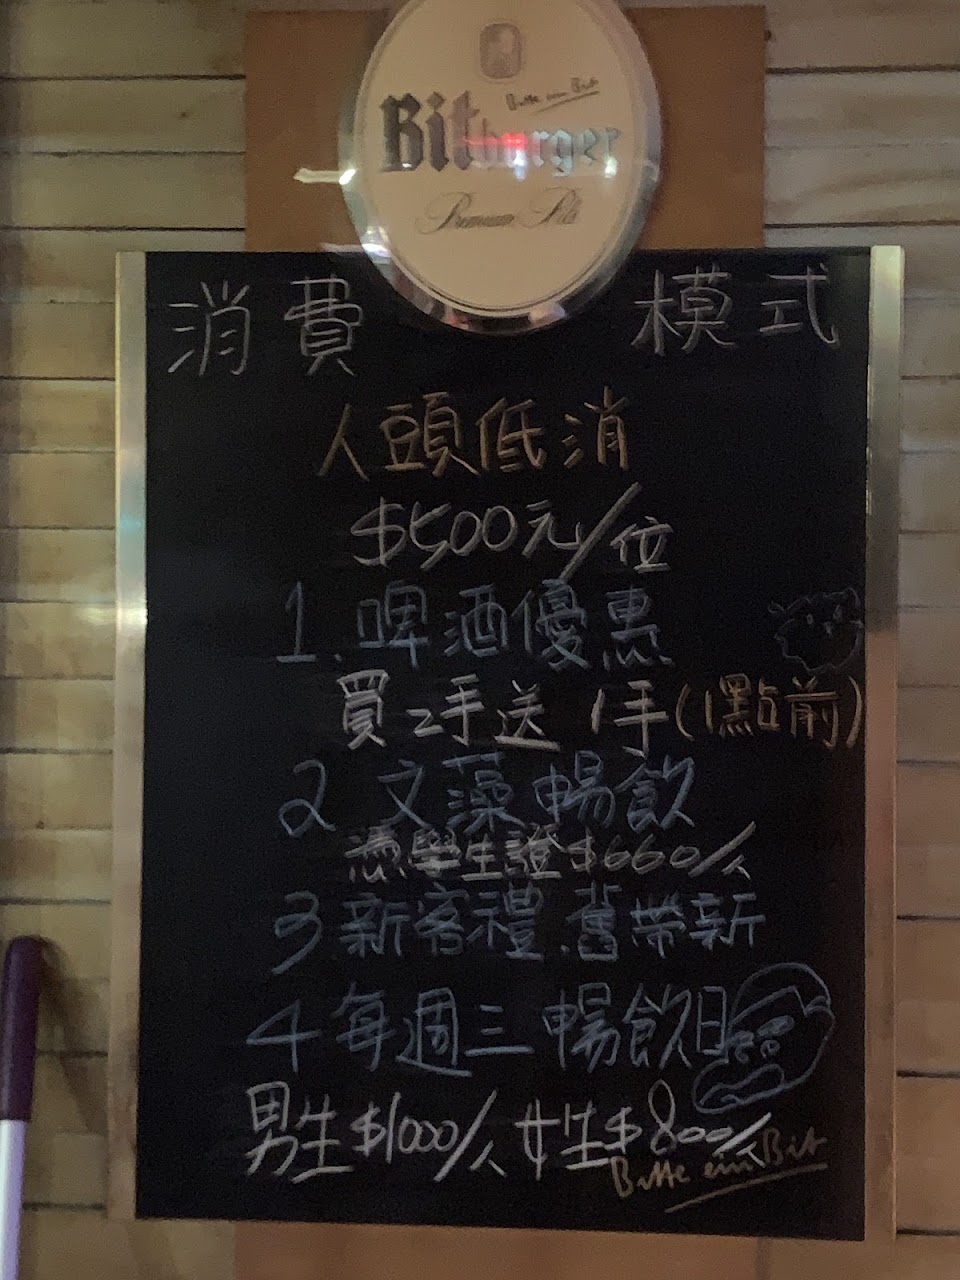 Bitte ein Bit
Bitburger
Premium Pils
消費 模式
人頭低消
$500元/位
1. 啤酒優惠
買2手送1手(1點前)
2 文藻暢飲
憑學生證$660/人
3 新客禮.舊帶新
4 每週三暢飲日
男生$1000/人 女生$800/人
Bitte ein Bit